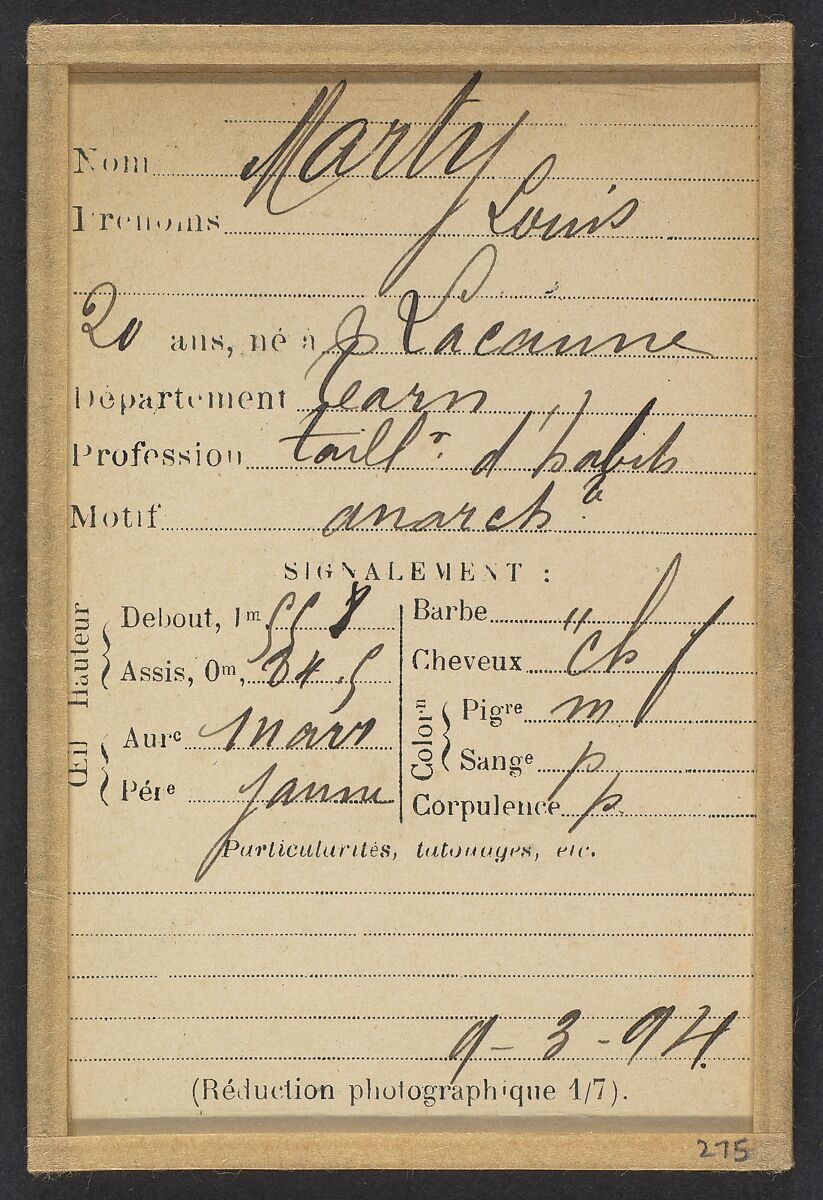 Nom Marty
Prénoms Louis
20 ans, né à Lacaune
Département Tarn
Profession taillr. d'habits
Motif anarch
SIGNALEMENT :
Hauteur
Debout, 1m 55 8
Assis, 0m, 84.5
Œil
Aurc marr
Pére jaune
Barbe "
Cheveux ch f
Colorn
Pigre m
Sange p
Corpulence p.
Particularités, tatouages, etc.
9-3-94.
(Réduction photographique 1/7).
275